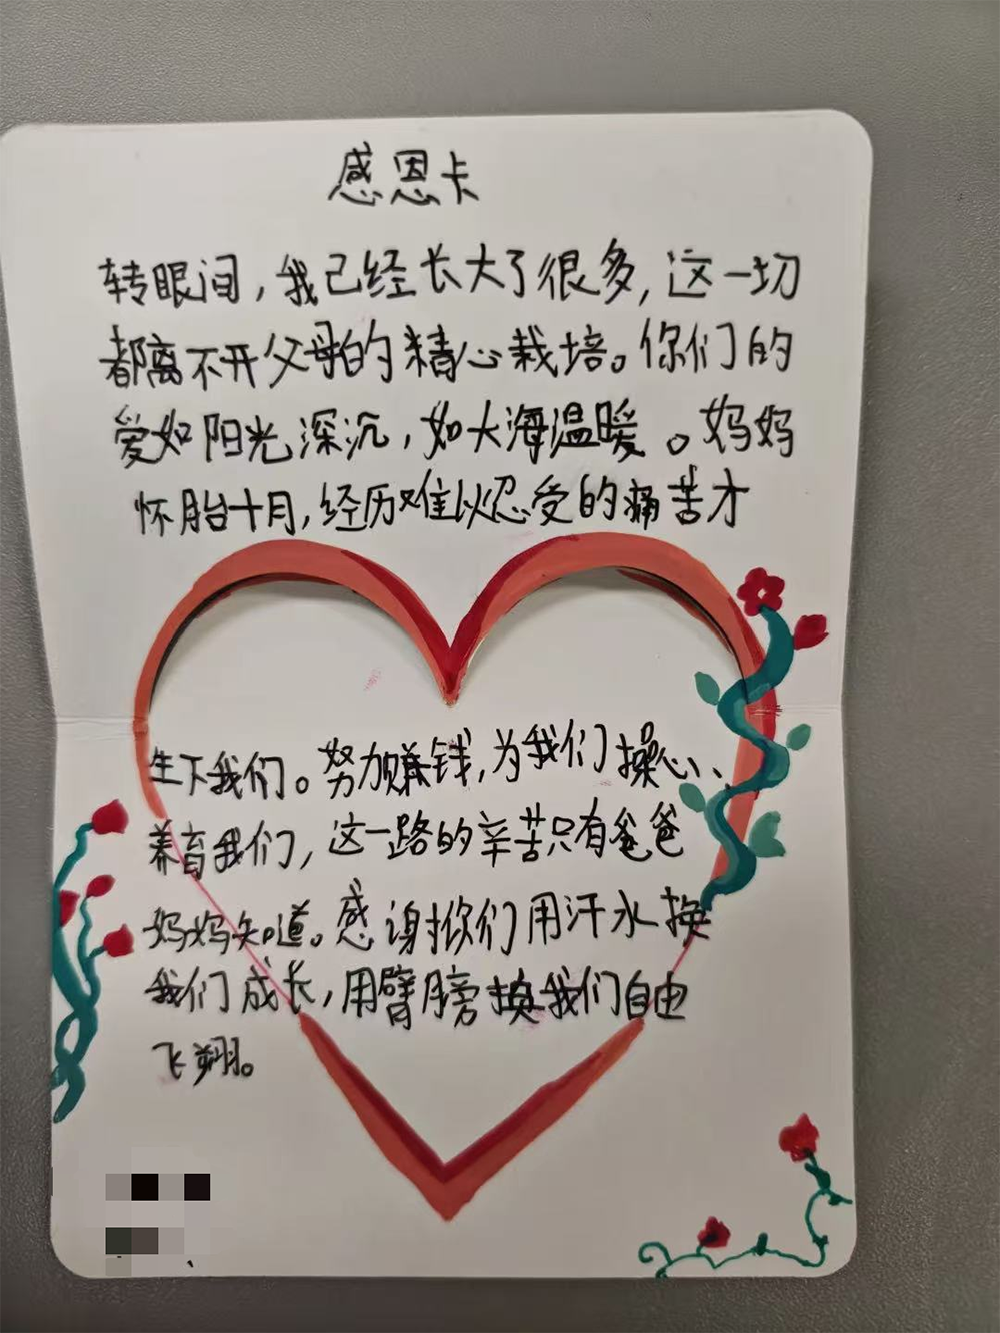 感恩卡
转眼间，我已经长大了很多，这一切
都离不开父母的精心栽培。你们的
爱如阳光深沉，如大海温暖。妈妈
怀胎十月，经历难以忍受的痛苦才
生下我们。努力赚钱，为我们操心、
养育我们，这一路的辛苦只有爸爸
妈妈知道。感谢你们用汗水换
我们成长，用臂膀换我们自由
飞翔。